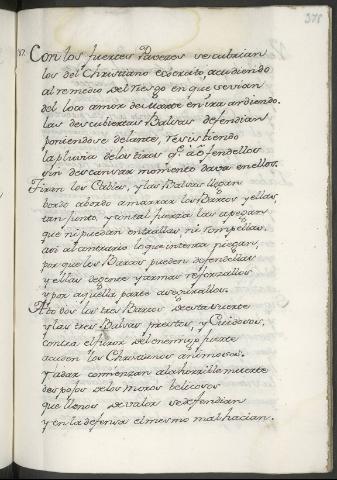 378
57. Con los fuertes Paveses se cubrian
los del Christiano exercito, acudiendo
al remedio del riesgo en que se vian
del loco amor de Marte en ira ardiendo.
las descubiertas Balsas defendian
poniendose delante, resistiendo
la pluvia de los tiros q.e
sin descansar momento dava en ellos.
Tiran los Cables, y las Balsas llegan
bordo a bordo amarrar los Barcos y ellas,
tan junto, y con tal fuerza las apegan
que ni puedan entrallas ni rompellas.
asi al contrario lo que intenta niegan,
por que los Barcos pueden defendellas
y ellas de gente y armas reforzallos
y por aquella parte
Atados los tres Barcos de esta suerte
y las tres Balsas prestos, y
contra el furor del enemigo fuerte
acuden los Christianos animosos.
y a dar comienzan a la horrible muerte
despojos de los moros belicosos
que llenos de valor se defendian
y en la defensa el mesmo mal hacian.